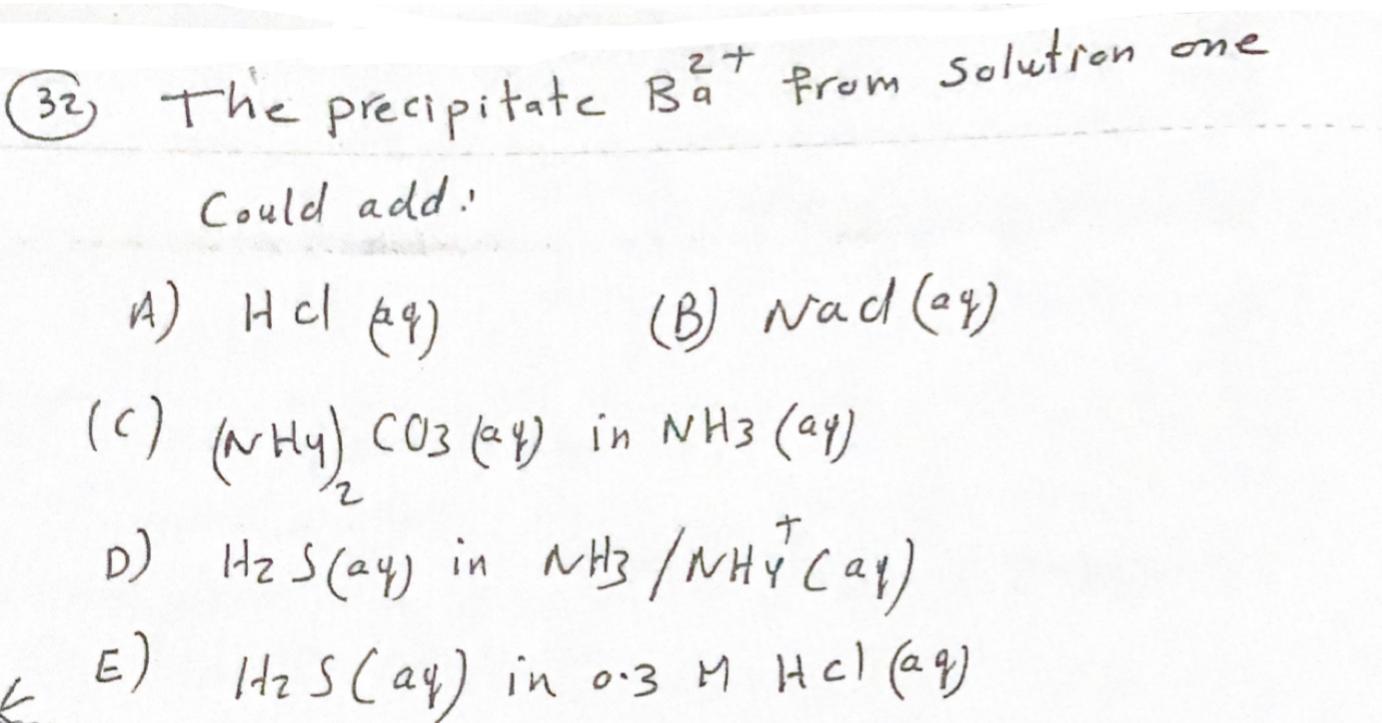 32) The precipitate Ba²⁺ from solution one
Could add:
A) Hcl (aq) (B) Nacl (aq)
(C) (NH4)₂ CO3 (aq) in NH3 (aq)
D) H2 S(aq) in NH3 / NH4⁺ (aq)
E) H2 S(aq) in 0.3 M Hcl (aq)